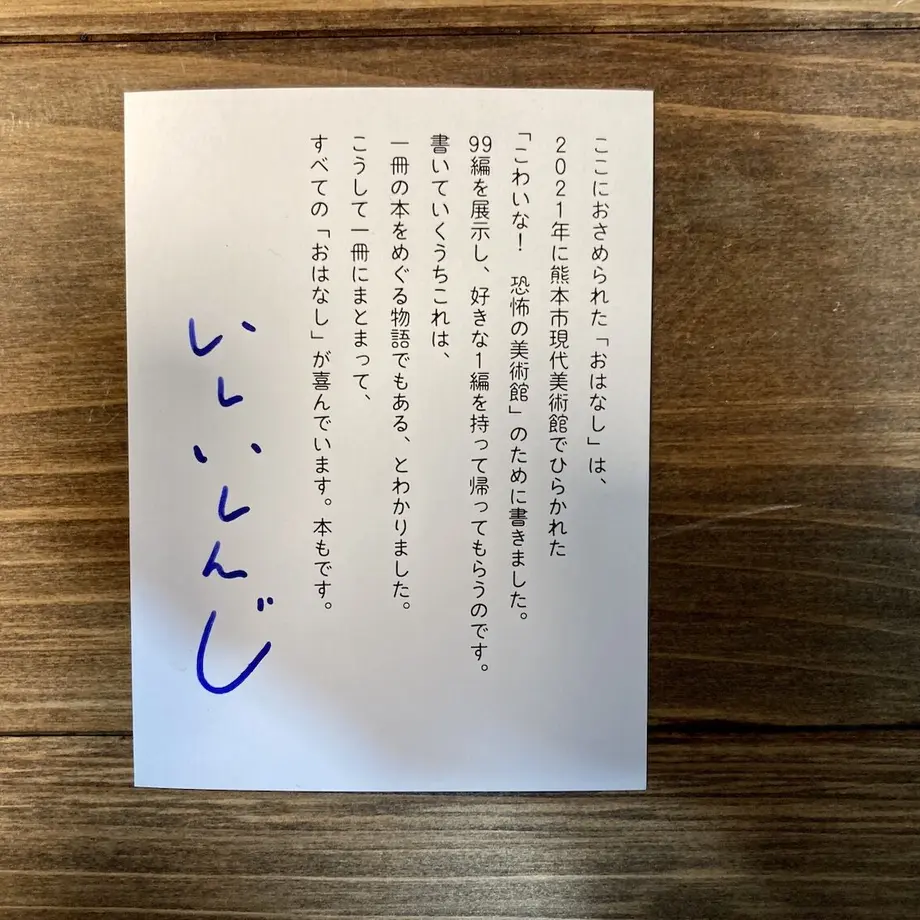 ここにおさめられた「おはなし」は、
2021年に熊本市現代美術館でひらかれた
「こわいな!　恐怖の美術館」のために書きました。
99編を展示し、好きな1編を持って帰ってもらうのです。
書いていくうちこれは、
一冊の本をめぐる物語でもある、とわかりました。
こうして一冊にまとまって、
すべての「おはなし」が喜んでいます。本もです。
いしいしんじ